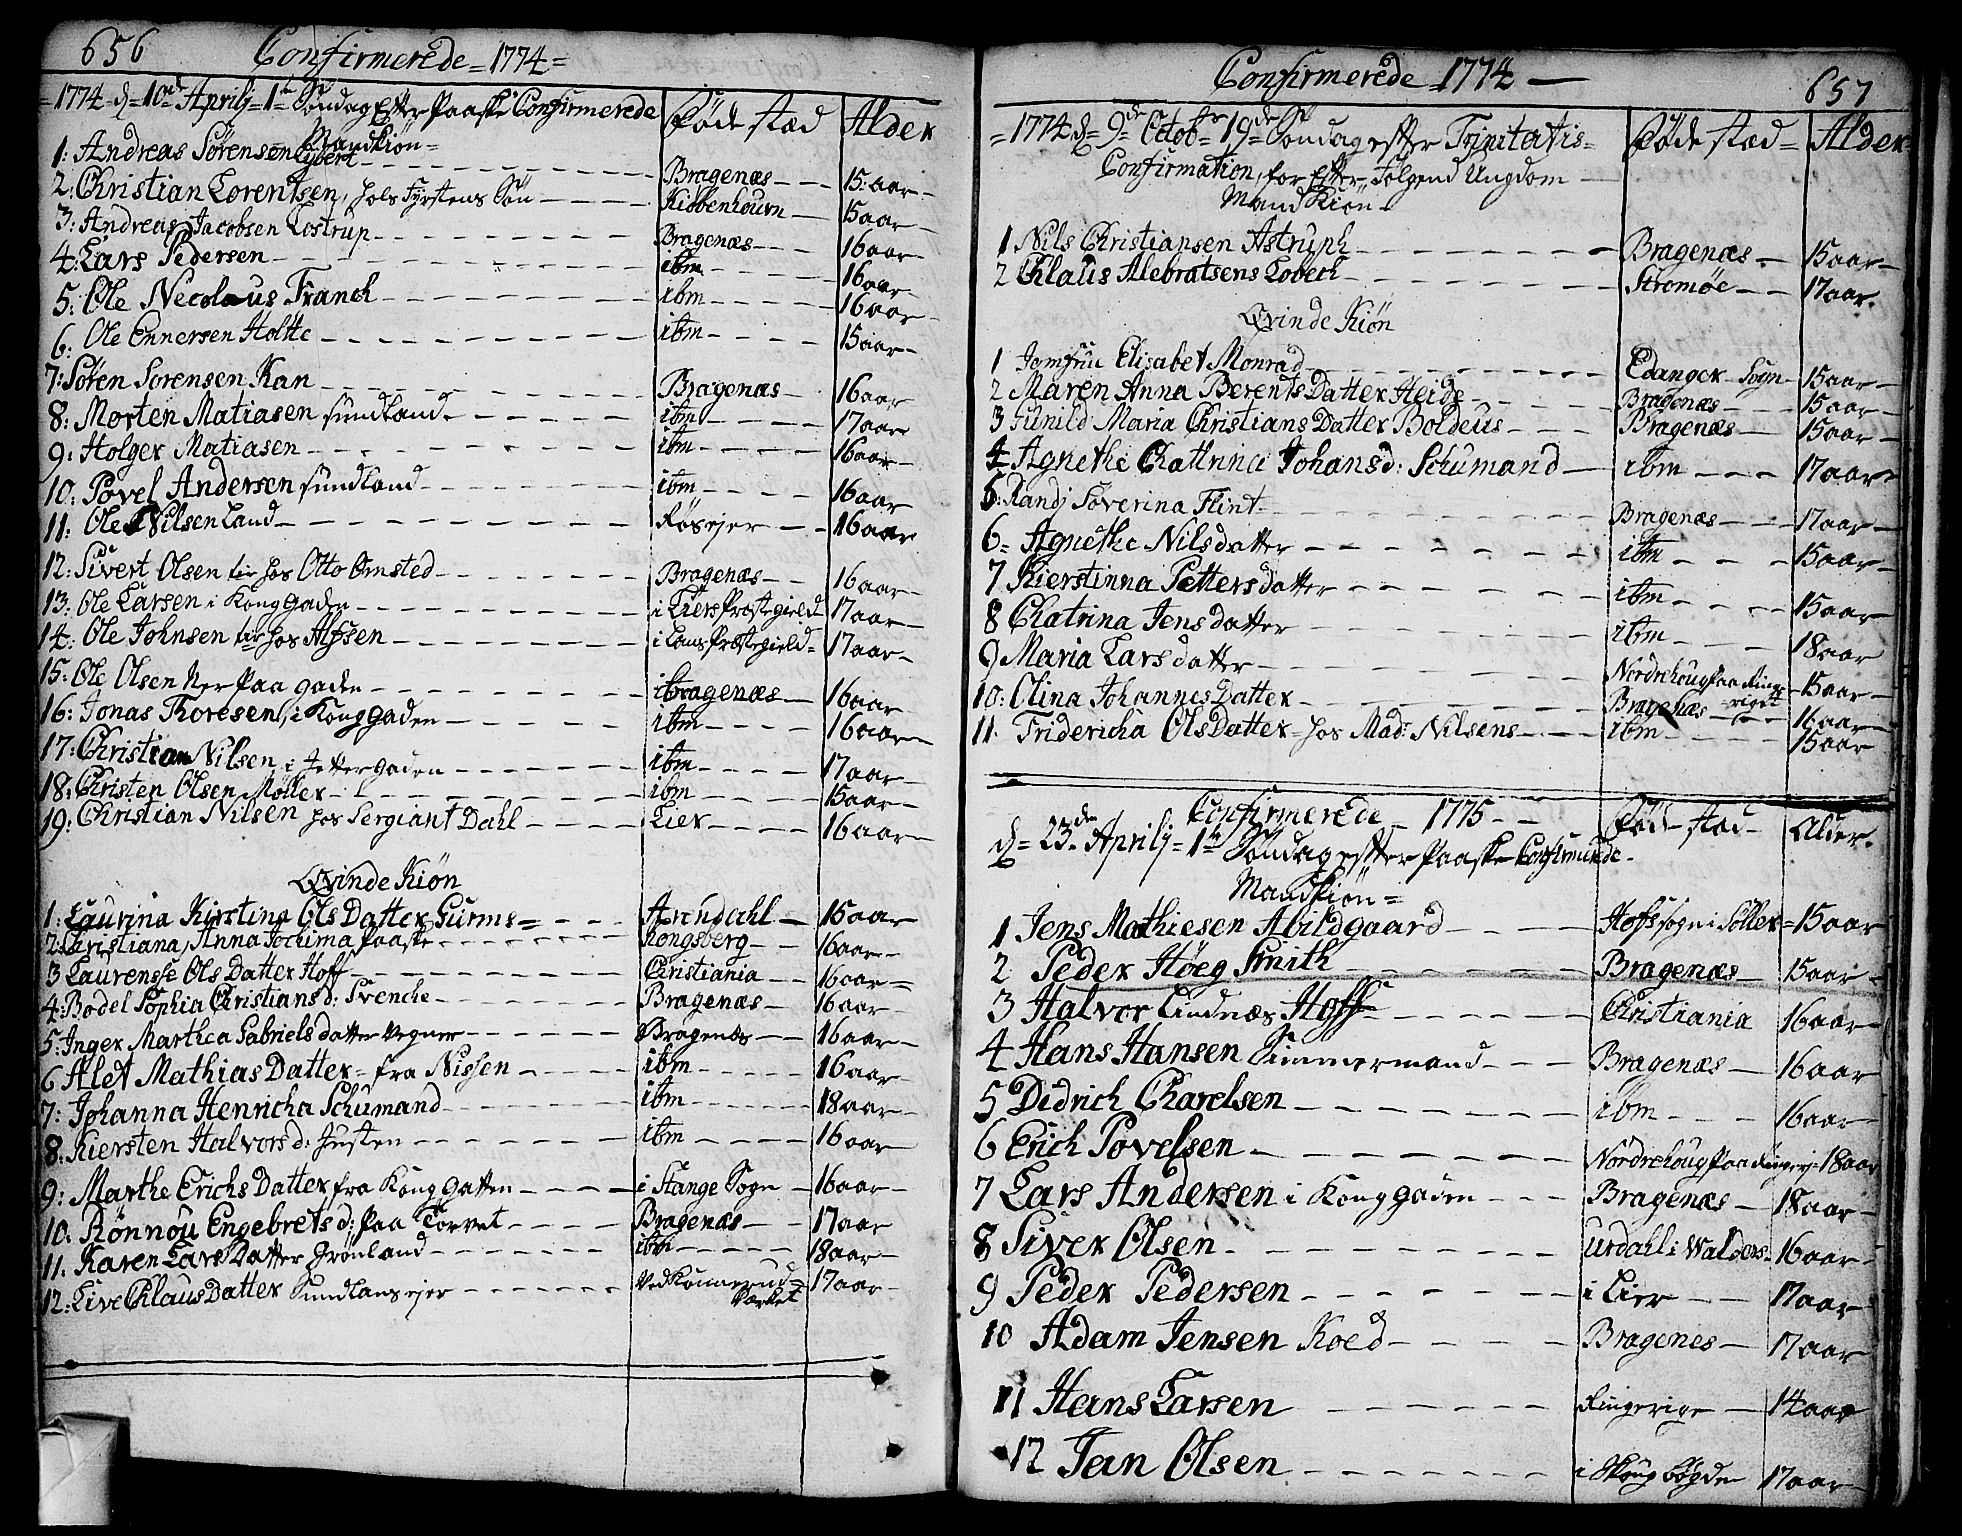 656 Confirmerede = 1774 =
= 1774 d = 10de Aprilj = 1te Söndag Efter Paaske Confirmerede Föde stæd Alder
Mandkiön =
1: Andreas Sörensen Bragenæs 15: aar
2: Christian Lorentsen, Sön Kiöbenhoun 15 aar
3: Andreas Jacobsen Lostrup Bragenæs 16 aar
4: Lars Pedersen ibm 16 aar
5: Ole Necolaus Franch ibm 16 aar
6: Ole Ennersen Holtte ibm 15 aar
7: Sören Sorensen Kan Bragenæs 16 aar
8: Morten Matiasen sundland ibm 17 aar
9: Holger Matiasen ibm 16 aar
10: Povel Andersen sundland ibm 16 aar
11: Ole Nilsen Land 16 aar
12: Sivert Olsen hos Otto Omsted Bragenæs 16 aar
13: Ole Larsen i Kong gaden i Liers Prestegield 17 aar
14: Ole Johnsen hos Alfsen i Lans Prestegield = 17 aar
15: Ole Olsen Ner Paa gaden Bragenæs 16 aar
16: Jonas Thoresen, i Kong gaden ibm 16 aar
17: Christian Nilsen i gaden ibm 17 aar
18: Christen Olsen Möller ibm 15 aar
19: Christian Nilsen hos Sergiant Dahl Lier 16 aar
Qvinde Kiön
1: Laurina Kirstina Ols Datter Gurms = Arendahl 15 aar
2: Christiana, Anna Jochima Paaske Kongsberg 16 aar
3 Laurense Ols Datter Hoff Christiania 16 aar
4: Bodel Sophia Christians d: Svenche Bragenæs 16 aar
5: Inger Marthea Gabriels datter Vegner Bragenæs 16 aar
6 Alet Mathias Datter = fra Nissen ibm 16 aar
7: Johanna Henricha Schumand ibm 18 aar
8: Kiersten Halvors d: Justen ibm 16 aar
9: Marthe Erichs Datter fra Kong gatten i Stange Sogn 16 aar
10. Rönnou Engebrets d: Paa Torvet Bragenæs 17 aar
11. Karen Lars Datter Grönland ibm 18 aar
12: Live Claus Datter Sundlans ejer Ved Konnerud = 17 aar
Værket
Confirmerede 1774 657
= 1774 d = 9de Octobr 19de Söndag efter Trinitatis = Föde stæd = Alder
Confirmation, for Efter Følgend Ungdom
Mand Kiön
1 Nils Christiansen Astruph Bragenæs 15 aar
2 Claus Alebratsens Lobech Stromöe 17 aar.
Qvinde Kiön
1 Jomfru Elisabet Monrad Edanger Sogn 15 aar
2 Maren Anna Berents Datter Heide Bragenæs 15 aar
3 Gunild Maria Christians Datter Boldeus Bragenæs 15 aar
4 Agnethe Chattrina Johans d: Schumand ibm 17 aar
5: Randj Soverina Flint Bragenæs 17 aar
6 = Agnethe Nils datter ibm 15 aar
7 Kierstinna Petters datter ibm 15 aar
8 Chatrina Jens datter ibm 18 aar
9 Maria Lars datter Nordrehoug Paa Ringe 15 aar
riget
10: Olina Johannes Datter Bragenæs 16 aar
11. Fridericha Ols Datter = hos Mad: Nilsens ibm 15 aar
Confirmerede 1775 Föde stæd Alder.
d = 23de Aprilj = 1te Söndag efter Paaske Confirmerede
Mandkiön =
1 Jens Mathiesen Abildgaard Hofs sogn i Soller = 15 aar
2 Peder Höeg Smith Bragenæs 15 aar
3 Halvor Lindnæs Hoff Christiania 16 aar
4 Hans Hansen Timmermand Bragenæs 16 aar
5 Didrich Charelsen ibm 16 aar
6 Erich Povelsen Nordrehoug Paa Ringerj = 18 aar
7 Lars Andersen i Kong gaden Bragenæs 18 aar
8 Siver Olsen Urdahl i Walders 16 aar
9 Peder Pedersen i Lier 17 aar
10 Adam Jensen Koed Bragenes 17 aar
11 Hans Larsen Ringerige 14 aar
12 Jan Olsen i bögden 17 aar